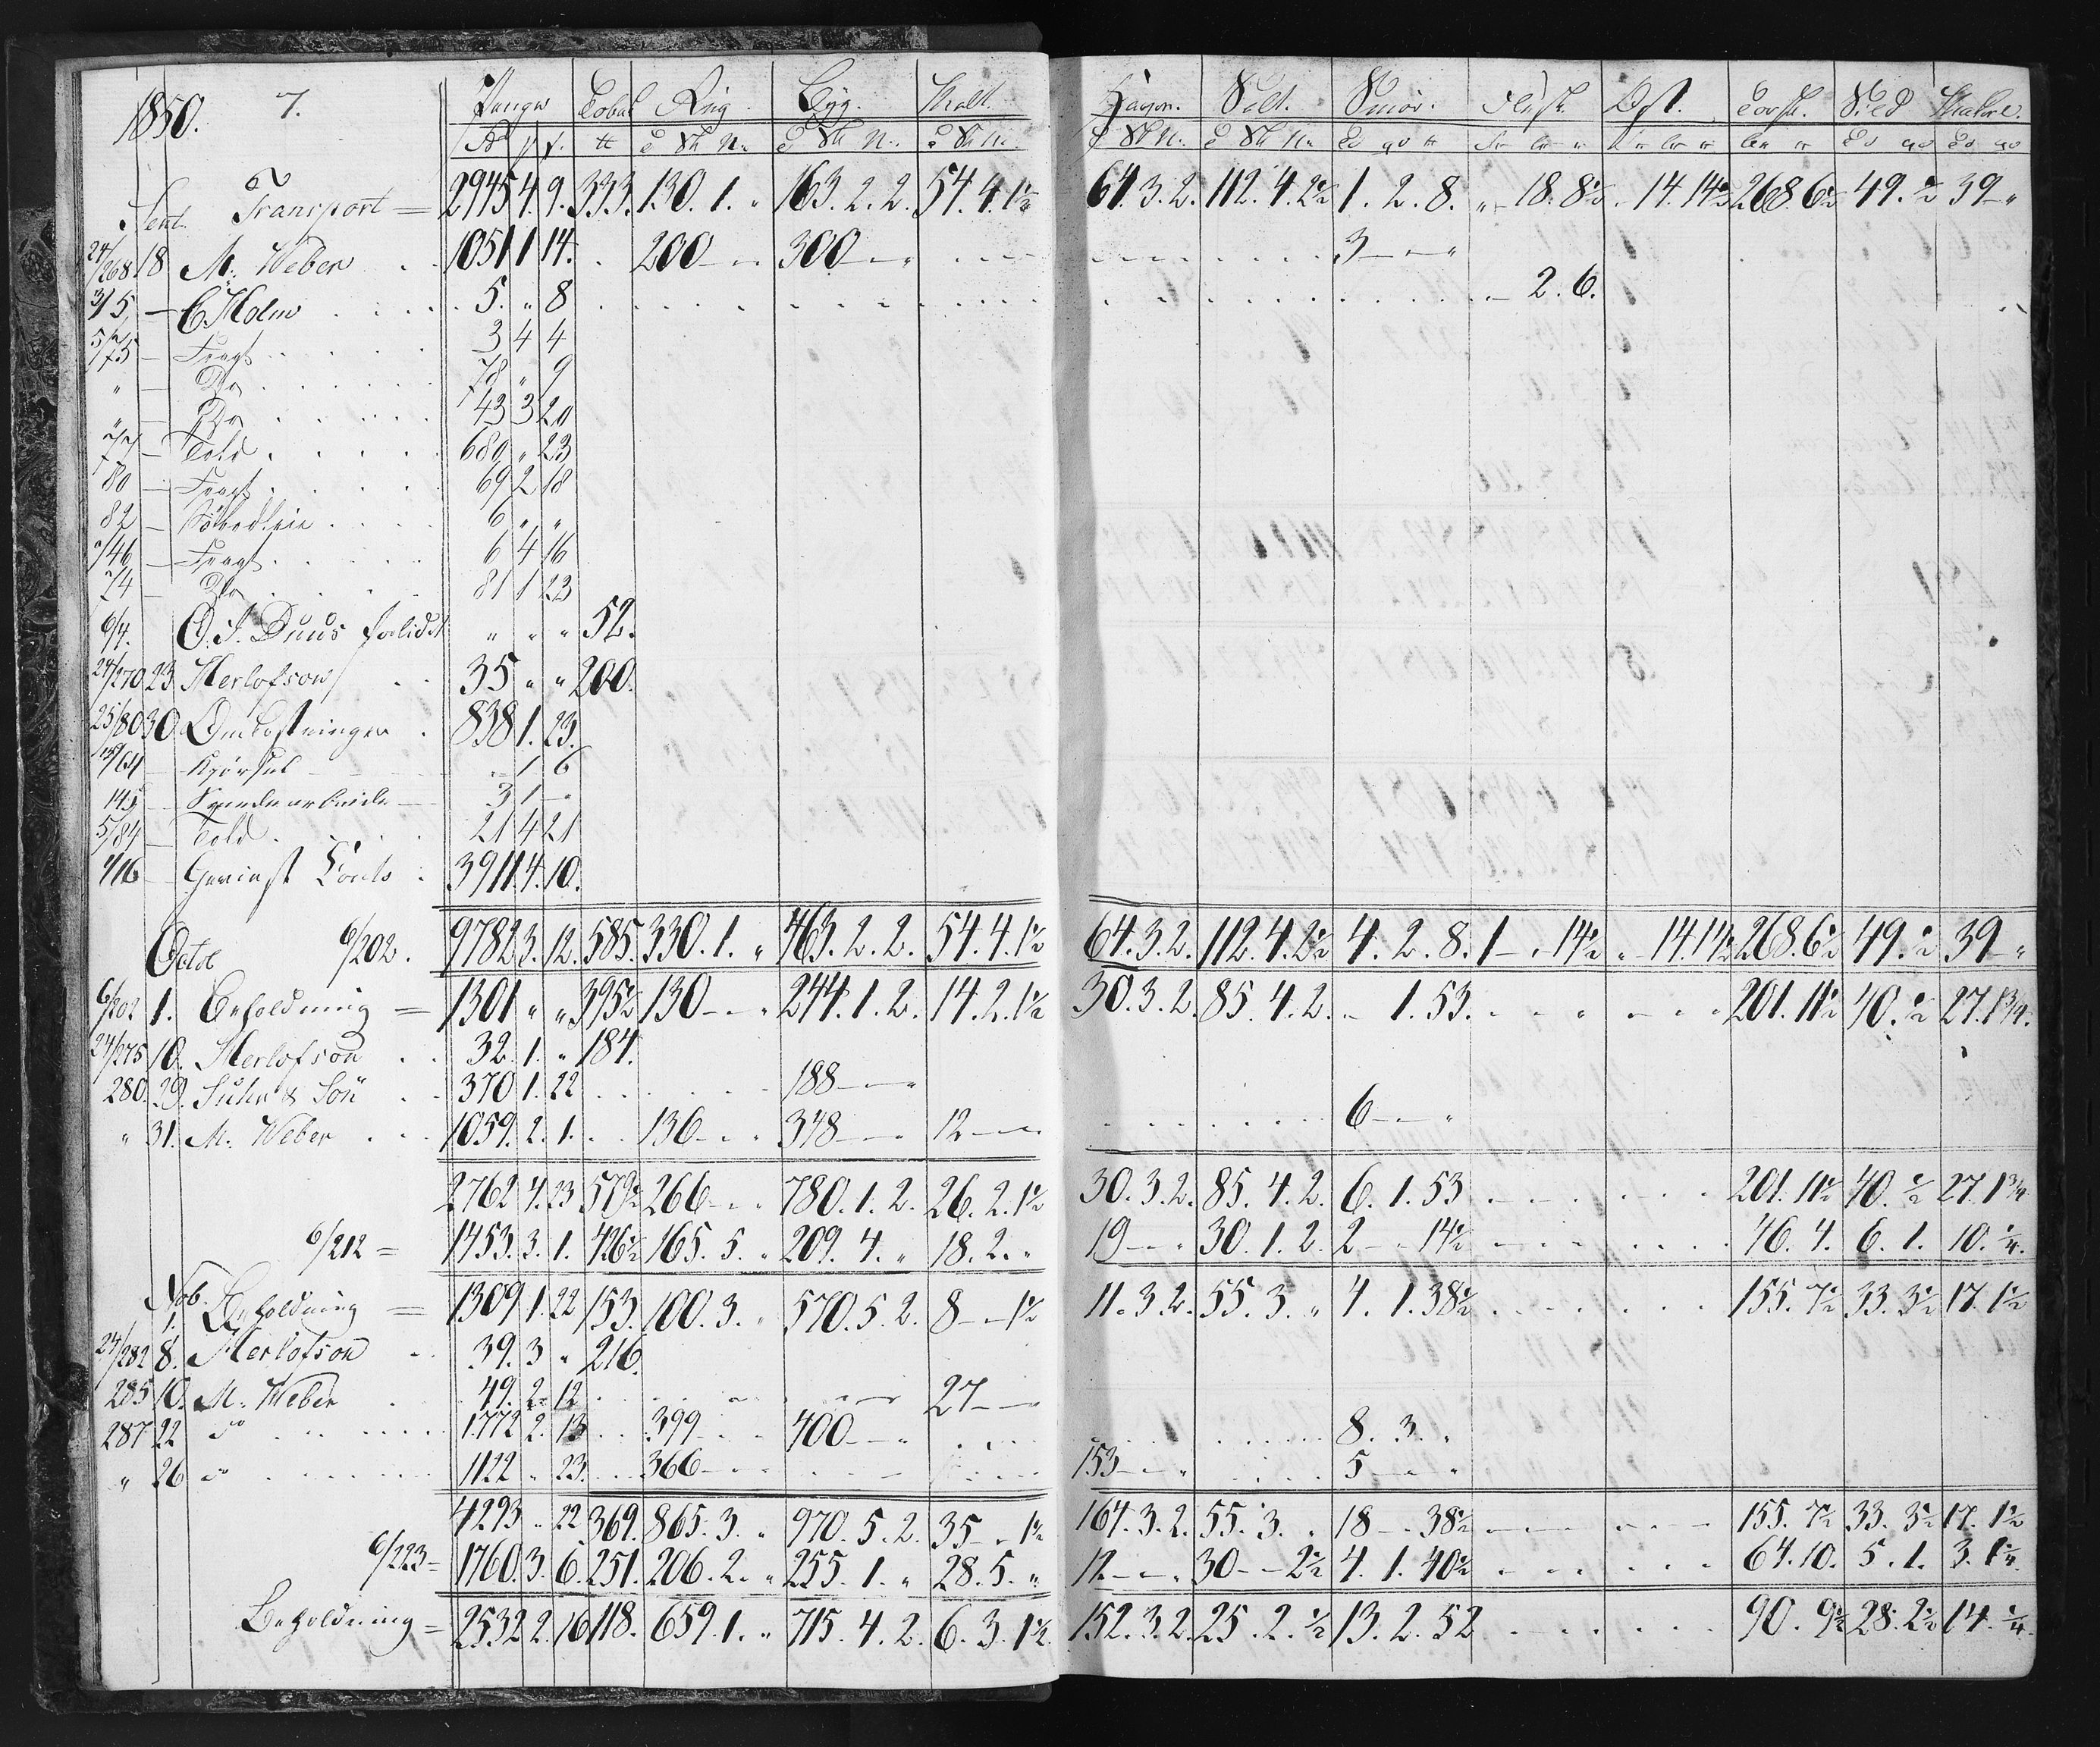 1850. 7. Penge Tobak Rug Byg. Malt. Havre. Salt. Smör. Flesk. Ost. Torsk. Sild
Transport = 2945 4. 9. 333. 130. 1. „ 163. 2. 2. 54. 4. 1½ 64. 3. 2. 112. 4. 2½ 1. 2. 8. „ – 18. 8½ „ 14. 14½ 268. 6½ 49. ½ 39 – „
Sept.
24/268 18 M. Weber . . 1051 1 14. . 200 – „ 300 – „ 3 – „
3/5 – C Holm . . . . 5. „ 8 „ – 2. 6.
5/75 – Fragt . . . . 3 4 4
„ – Do . . . . . 78 „ 9
„ – Do . . . . . 43 3 20
7/77 – Told . . . . . 689 „ 23
80 – Fragt . . . . 69 2 18
82 – Söbodleie . . . . 6 „ „
/46 – Fragt . . . . . 6 4 16
74 – Do . . . . 81 1 23
6/4. O. J. Duus „ „ „ 52.
24/270 23. Herlofson . . 35 „ „ 200.
25/80 30. Omkostninger . 838 1. 23.
/64 – Kjörsel – „ 1 6
145 – – 3 1 –
5/84 – Told . . . 21 4 21
4/16 – Gevinst Conto . 3911. 4. 10.
6/202. 9782 3. 12. 585. 330. 1. „ 463. 2. 2. 54. 4. 1½ 64. 3. 2. 112. 4. 2½ 4. 2. 8. 1 – „ 14½ „ – 14. 14½ 268. 6½ 49. ½ 39 – „
Octob
6/202 1. Beholdning = 1301 „ „ 395½ 130 – „ 244. 1. 2. 14. 2. 1½ 30. 3. 2. 85. 4. 2. – 1. 53. 201. 11½ 40. ½ 27. 1¾.
24/275 10. Herlofson . . 32. 1. „ 184.
280. 29. Suhr & Son . . 370 1. 22 188 – „
„ 31. M. Weber . . . 1059. 2. 1. . . 136 – „ 348 – „ 12 – „ 6 – „
2762 4. 23 579½ 266 – „ 780. 1. 2. 26. 2. 1½ 30. 3. 2. 85. 4. 2. 6. 1. 53 201. 11½ 40. ½ 27. 1¾
6/212 = 1453. 3. 1. 426½ 165. 5. „ 209. 4. „ 18. 2. „ 19 – „ 30. 1. 2. 2 – „ 14½ 46. 4. 6. 1. 10. ¼.
Nob.
1. Beholdning = 1309 1. 22 153. 100. 3. „ 570. 5. 2. 8 – 1½ 11. 3. 2. 55. 3. „ 4. 1. 38½ 155. 7½ 33. 3½ 17. 1½
24/282 8. Herlofson . . 39. 3 „ 216.
285 10. M. Weber . 49. 2. 12 27 – „
287 22 do . . . . 1772 2. 13 . . 399 – „ 400 – „ 8. 3. „
„ 26 do . . . . 1122 „ 23. . . 366 – „ 153 – „ 5 – „
4293 „ 22 369. 865. 3. „ 970. 5. 2. 35 – „ 1½ 164. 3. 2. 55. 3. „ 18 – „ 38½ 155. 7½ 33. 3½ 17. 1½
6/223 = 1760. 3. 6. 251. 206. 2. „ 255. 1. „ 28. 5. „ 12 – „ 30 – – 2½ 4. 1. 40½ 64. 10. 5. 1. 3. 1¼.
Beholdning = 2532 2. 16 118. 659. 1. „ 715. 4. 2. 6. 3. 1½. 152. 3. 2. 25. 2. ½ 13. 2. 52 90. 9½ 28. 2½ 14. ¼.